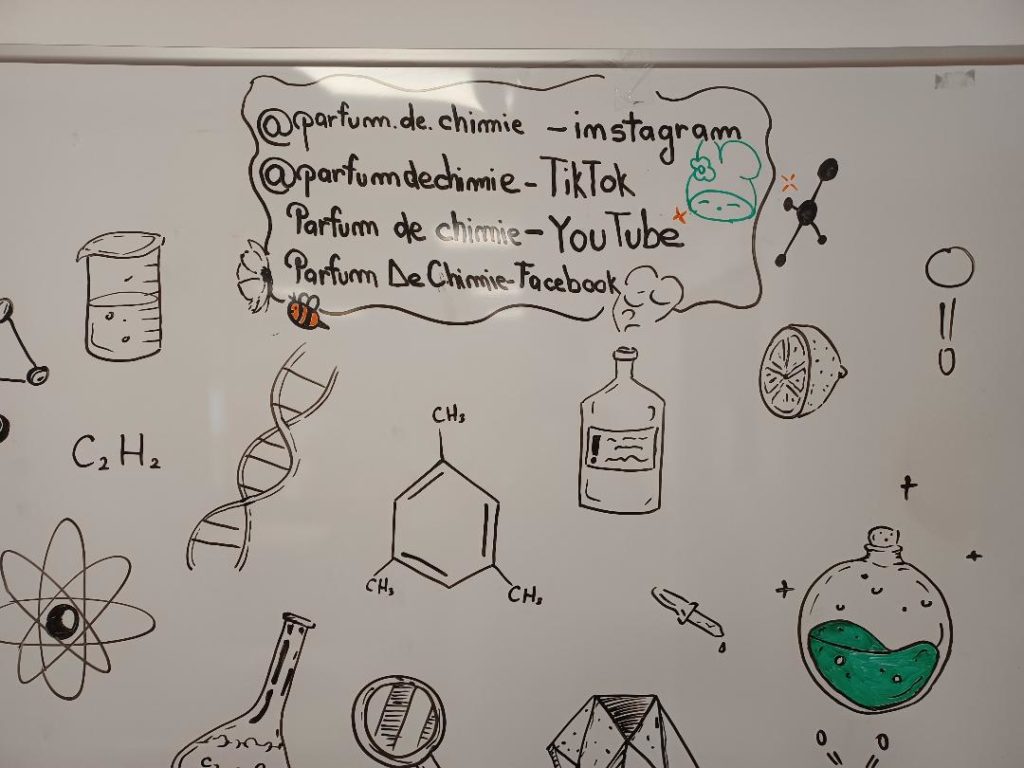 @parfum.de.chimie - instagram
@parfumdechimie - TikTok
Parfum de chimie - YouTube
Parfum De Chimie - Facebook
C₂H₂
CH₃
CH₃
CH₃
!